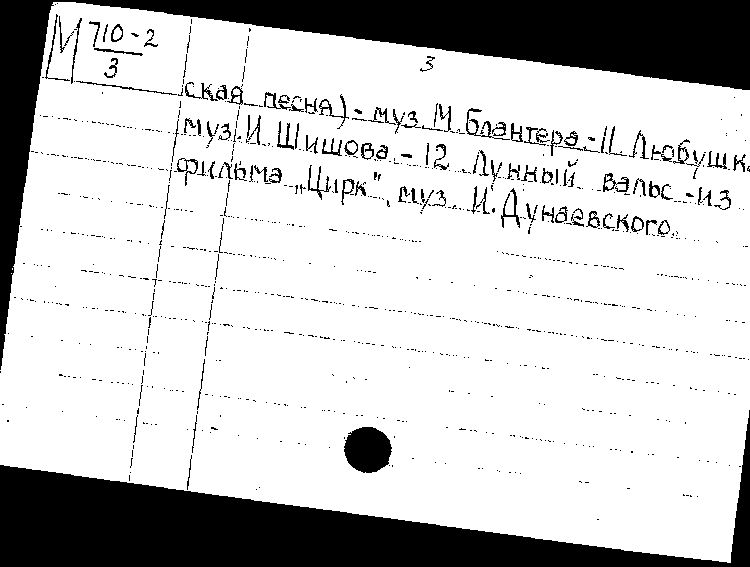 М 710-2
3
3
ская песня) - муз. М. Блантера. - 11. Любушка
муз. И. Шишова. - 12 Лунный вальс - из
фильма „Цирк", муз. И. Дунаевского.